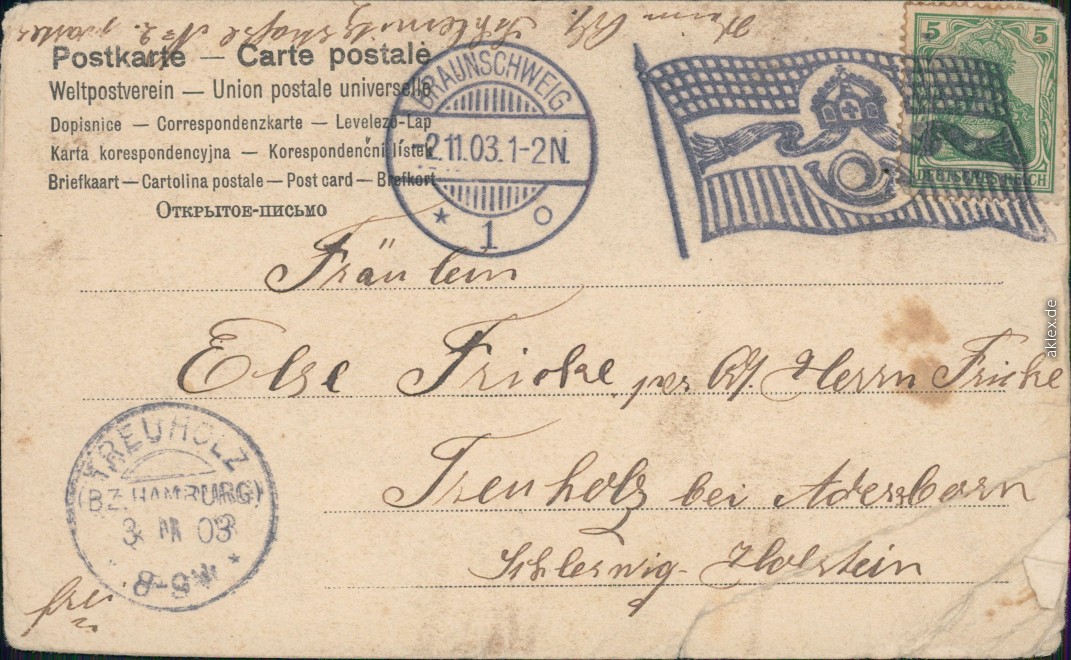 Postkarte — Carte postale
Weltpostverein — Union postale universelle
Dopisnice — Correspondenzkarte — Levelező-Lap
Karta korespondencyjna — Korespondenční lístek
Briefkaart — Cartolina postale — Post card — Brefkort
Открытое-письмо
BRAUNSCHWEIG
2.11.03.1-2N.
* 1 o
5 5
DEUTSCHES REICH
Fräulein
Else Fricke per Adr. Herrn Fricke
Treuholz bei
Schleswig-Holstein
TREUHOLZ
(BZ. HAMBURG)
3 11 03
8-9
frei
aklex.de